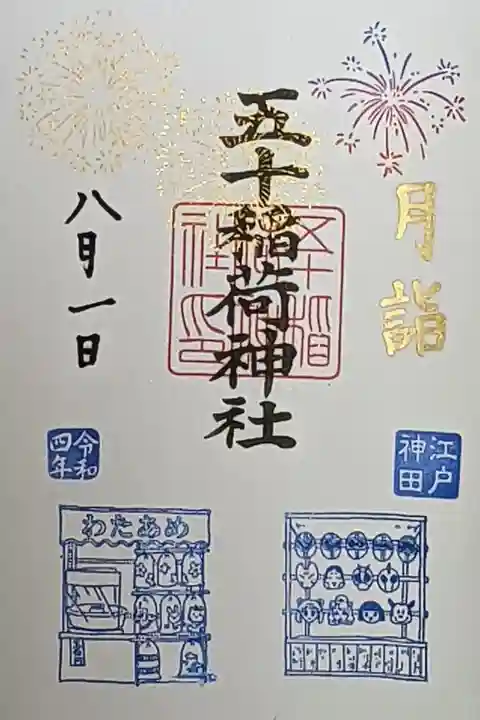 月詣
五十稲荷神社
八月一日
江戸
神田
令和
四年
わたあめ